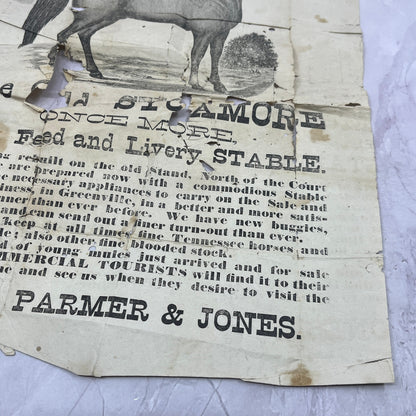 e Old SYCAMORE
ONCE MORE,
Feed and Livery STABLE.
g rebuilt on the old Stand, North of the Court
are prepared now with a commodious Stable
e necessary appliances to carry on the Sale and
iness in Greenville, in a better and more satis-
nner than ever before. We have new buggies,
and can send out a finer turn-out than ever.
keep at all times fine Tennessee horses and
le; also other fine blooded stock.
d of young mules just arrived and for sale
MMERCIAL TOURISTS will find it to their
me and see us when they desire to visit the
PARMER & JONES.